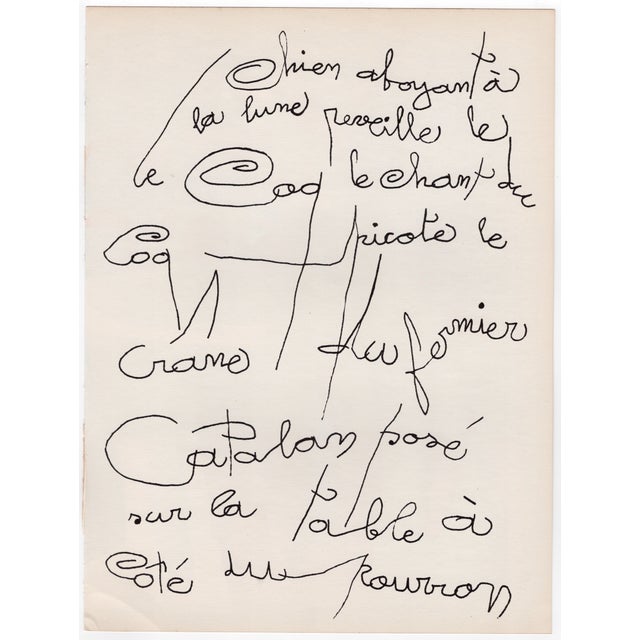 le Chien aboyant à
la lune reveille le
Coq le chant du
Coq picote le
crane du fermier
Catalan posé
sur la table à
Coté du pourron